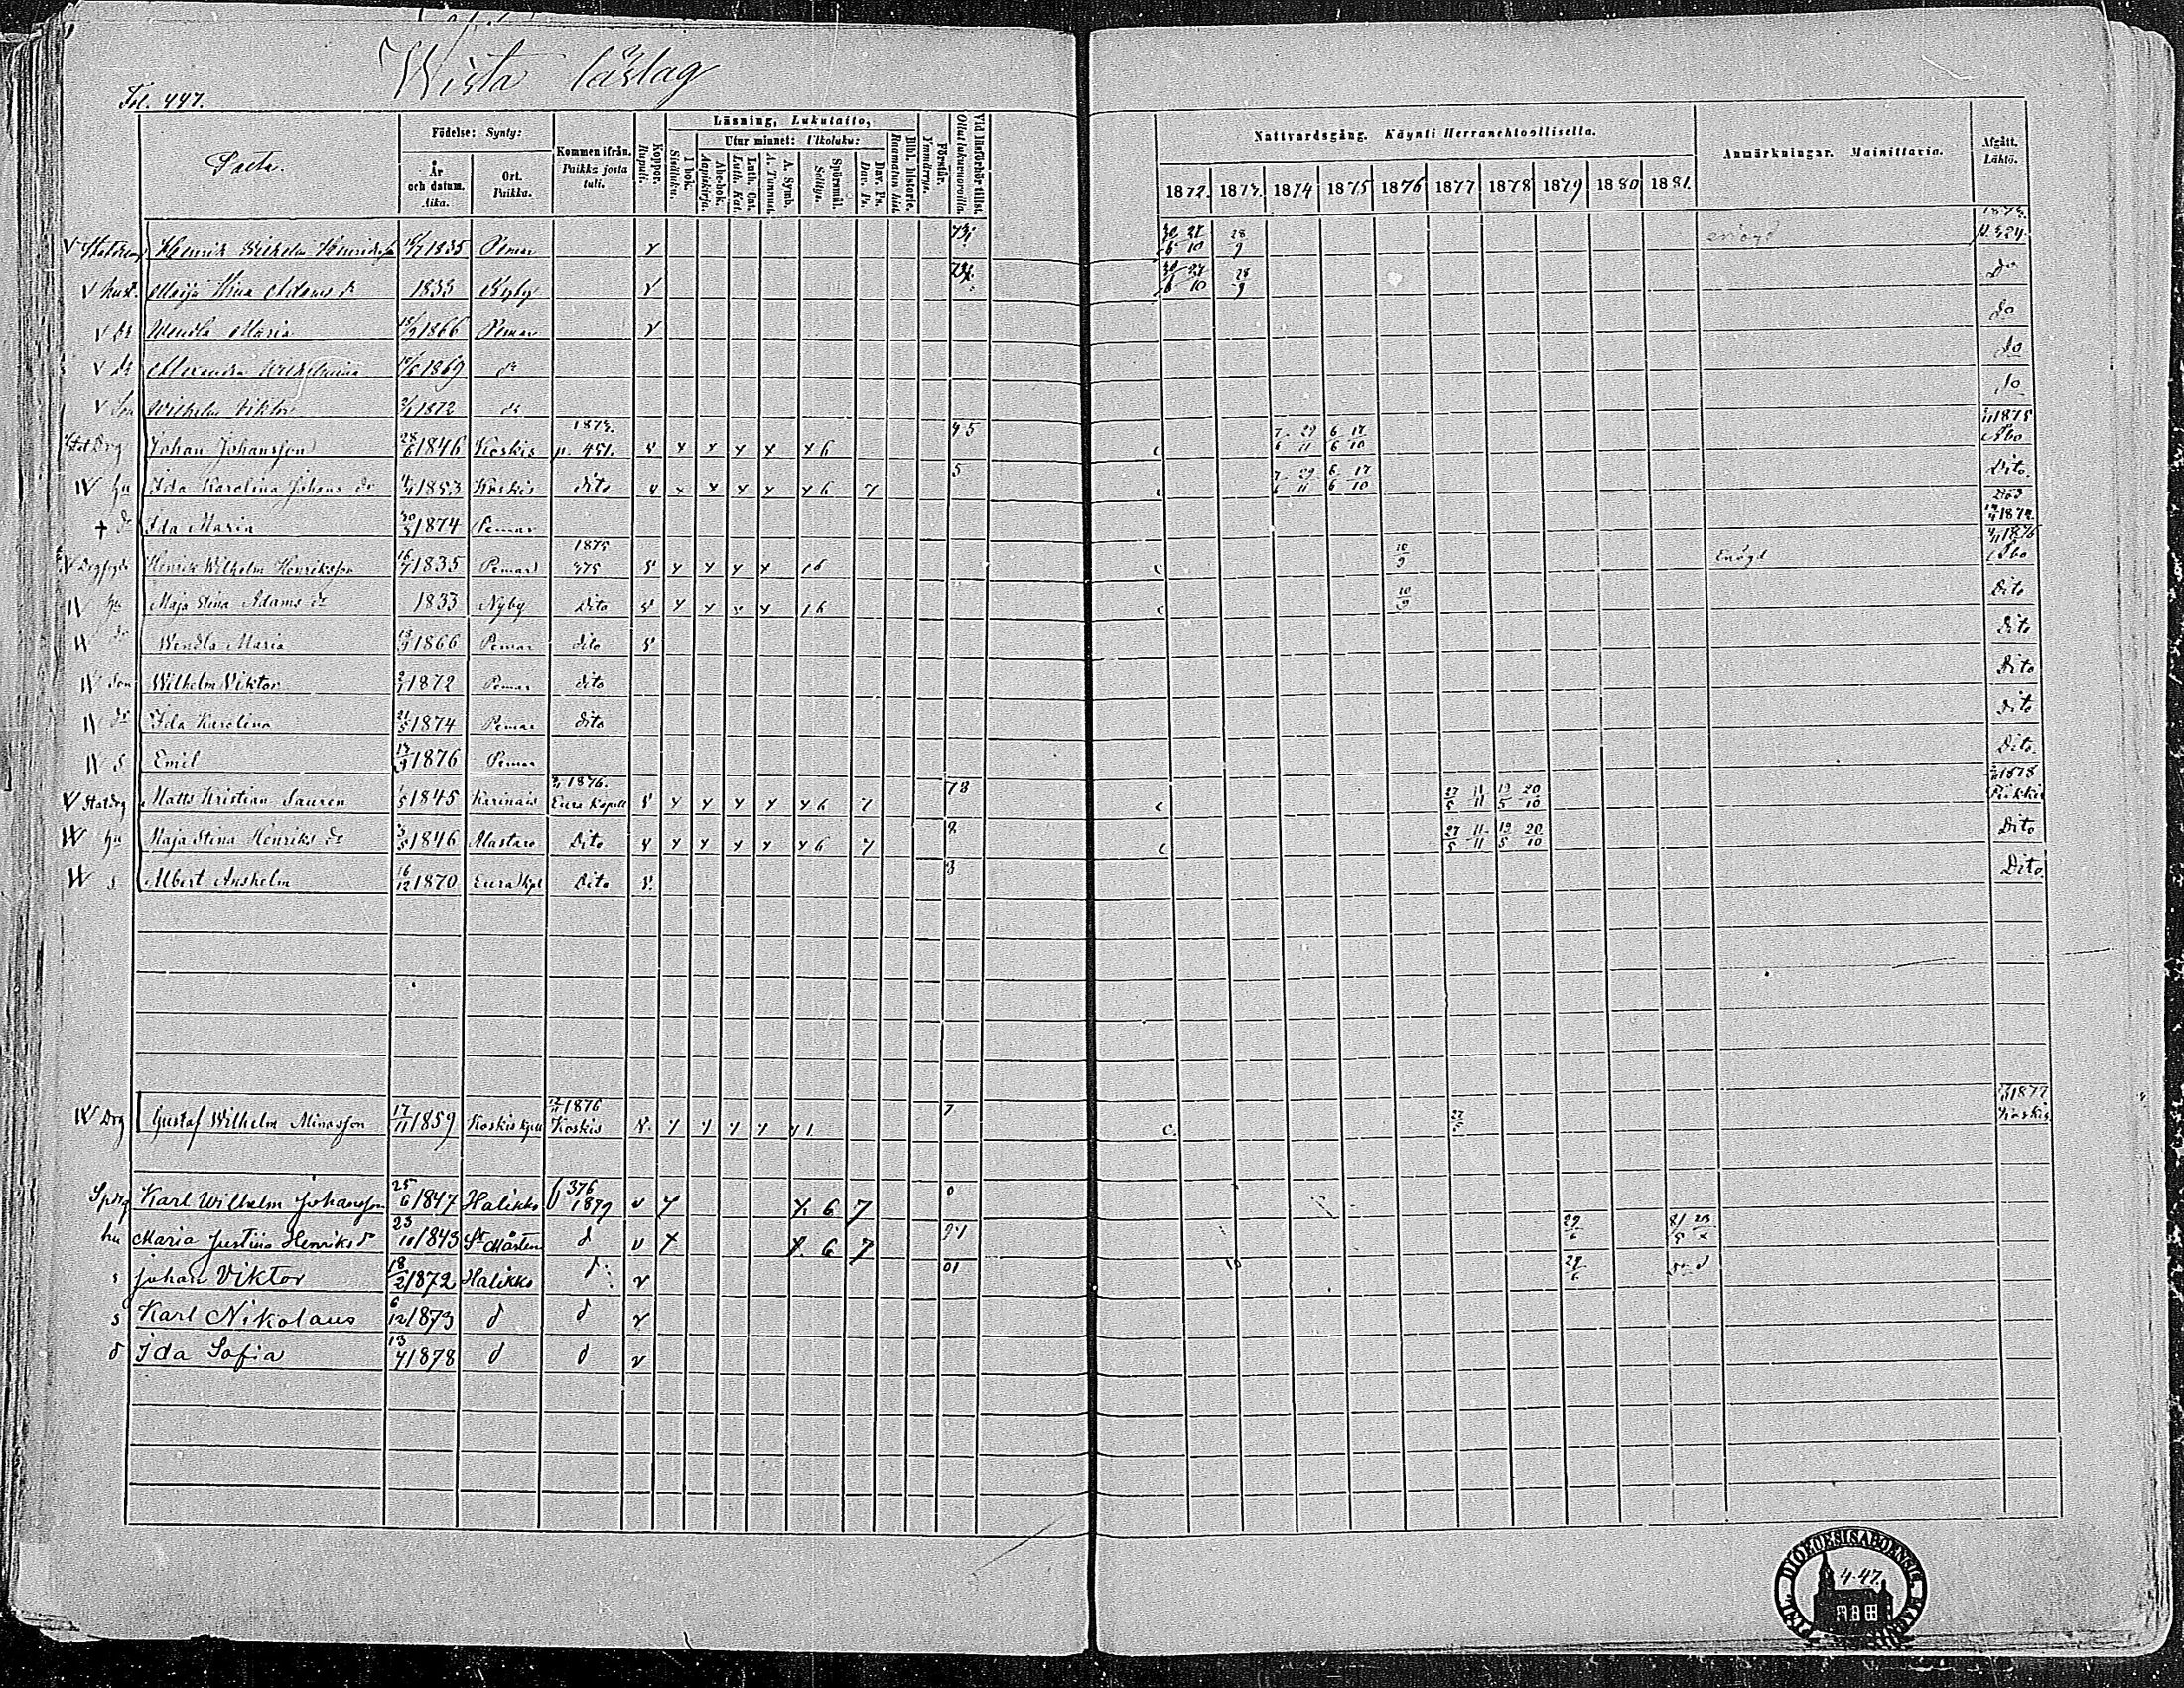 Wista läslag
Fol. 447.
Saeta.
Födelse: Synty:
År och datum. Aika.
Ort. Paikka.
Kommen ifrån. Paikka josta tuli.
Koppor. Rupuli.
Läsning, Lukutaito,
Sisäluku. I bok.
Utur minnet: Ulkoluku:
Abc-bok. Aapiskirja.
Luth. Kat.
A. Symb.
Spörsmål. Selitys.
Dav. Ps. Dav. Ps.
Bibl. historie. Raamatun hist.
Förstår. Ymmärrys.
Vid läsförhör tillst. Ollut lukuvuoroilla.
Nattvardsgång. Käynti Herranehtoollisella.
1872. 1873. 1874 1875 1876 1877 1878 1879 1880 1881.
Anmärkningar. Mainittavia.
Afgått. Lähtö.
Henrik Wilhelm Henriksson 16/7 1835 Pemar v 30/6 27/10 28/9 enögd p. 324
v hust. Maija Stina Adams dr 1833 Nyby v 30/6 27/10 28/9 do
v dr Wendla Maria 1866 Pemar v do
v dr Alexandra Wilhelmina 1869 dr do
v Son Wilhelm Viktor 2/1 1872 dr do
Johan Johansson 28/6 1846 Koskis 1873. p. 451. 45 7/6 29/11 6/6 17/10 1875 Åbo
hu Ida Karolina Johans dr 1853 Koskis dito 6 7 5 7/6 29/11 6/6 17/10 Dito
+ dr Ida Maria 1874 Pemar Död 1874.
Henrik Wilhelm Henriksson 16/7 1835 Pemar 1875 375 16 10/9 Enögd 1876 Åbo
hu Maja Stina Adams dr 1833 Nyby Dito 16 10/9 Dito
dr Wendla Maria 1866 Pemar dito Dito
Son Wilhelm Viktor 2/1 1872 Pemar dito Dito
dr Ida Karolina 21/5 1874 Pemar dito Dito
S Emil 1876 Pemar Dito.
Statdrg Matts Kristian Sauren 1/5 1845 Karinais 1876. Eura Kapell 6 7 78 27/5 11/11 19/5 20/10 1878 Piikkis
hu Maja Stina Henriks dr 1846 Alastaro Dito 6 7 8 27/5 11/11 19/5 20/10 Dito
s Albert Anshelm 16/12 1870 Eura kpl Dito 8 Dito.
Drg Gustaf Wilhelm Minasson 17/11 1859 Koskis kpell 1876 Koskis 7 c. 1877 Koskis
Karl Wilhelm Johansson 25/6 1847 Halikko 376 1879 v 6 7 0
hu Maria Justina Henriks dr 23/10 1843 St Mårtens d v 6 7 29/6
s Johan Viktor 18/2 1872 Halikko d v 01 29/6
s Karl Nikolaus 6/12 1873 d d v
d Ida Sofia 13/7 1878 d d v
DIOECESIS ABOENSIS
4-47.